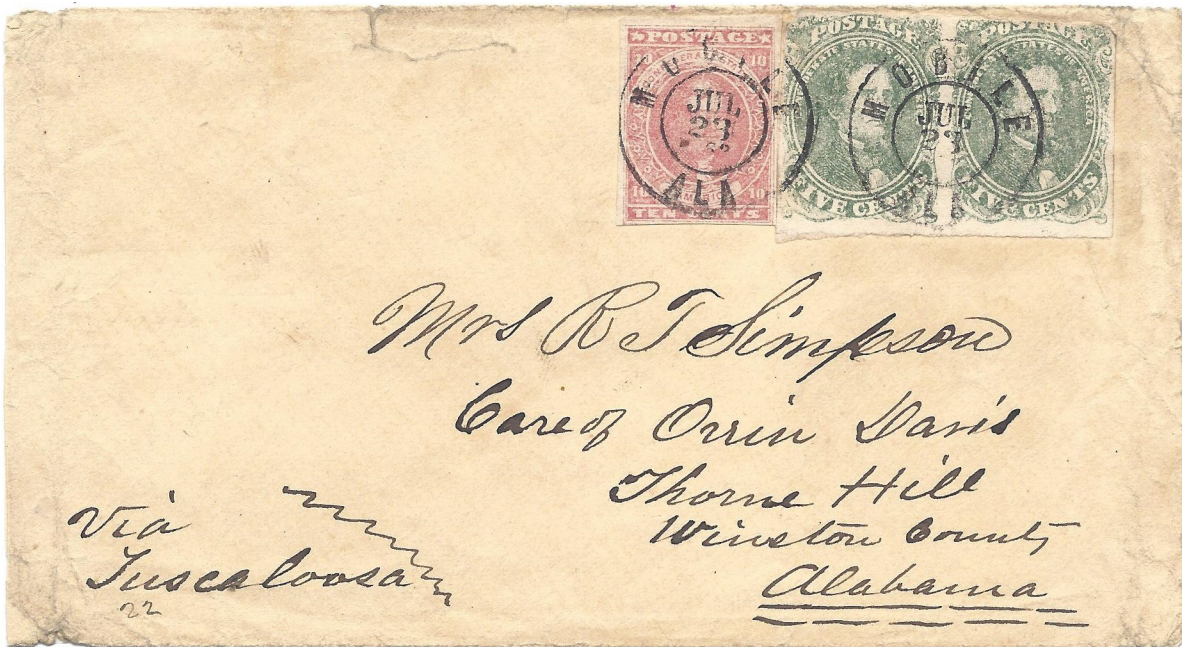 POSTAGE
10 10
10 10
TEN CENTS
MOBILE
JUL
23
ALA
POSTAGE
FIVE CENTS
POSTAGE
FIVE CENTS
MOBILE
JUL
23
Mrs R T Simpson
Care of Orrin Davis
Thorne Hill
Winston County
Alabama
via
Tuscaloosa
22